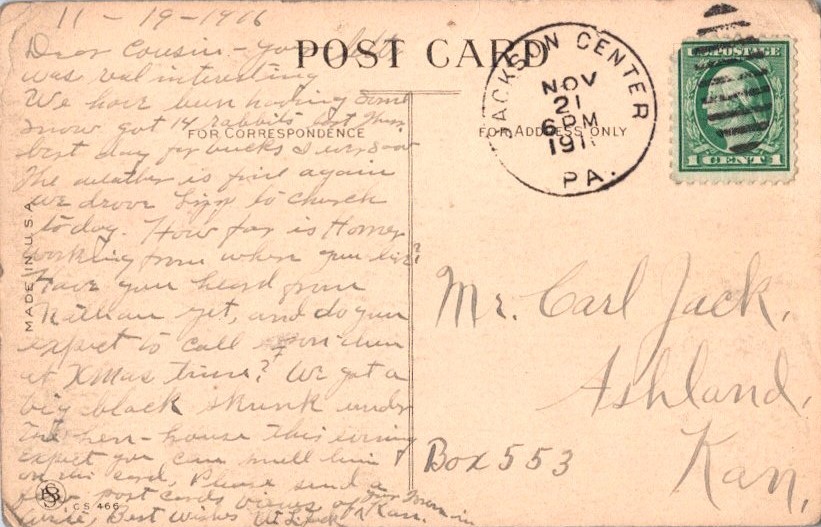 11-19-1916
POST CARD
Dear Cousin - your
was interesting
We have been having some
snow got 14 rabbits
best day for bucks I ever saw
The weather is fine again
we drove to church
today. How far is Homer
working from where you live?
Have you heard from
yet, and do you
expect to call on them
at XMas time? We got a
big black skunk under
the hen-house this evening
expect you can smell him
on this card, Please send a
few post cards views of your town in
write, Best Wishes Kan.
FOR CORRESPONDENCE
FOR ADDRESS ONLY
JACKSON CENTER
NOV
21
6 PM
191
PA.
U.S. POSTAGE
1 CENT 1
Mr. Carl Jack,
Ashland,
Kan,
Box 553
MADE IN U.S.A.
CS 466